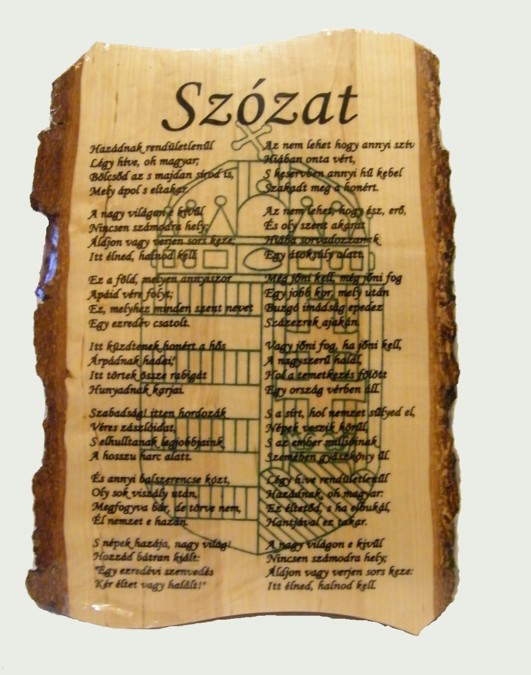 Szózat
Hazádnak rendületlenűl
Légy híve, oh magyar;
Bölcsőd az s majdan sírod is,
Mely ápol s eltakar.
A nagy világon e kivűl
Nincsen számodra hely;
Áldjon vagy verjen sors keze;
Itt élned, halnod kell.
Ez a föld, melyen annyiszor
Apáid vére folyt;
Ez, melyhez minden szent nevet
Egy ezredév csatolt.
Itt küzdtenek honért a hős
Árpádnak hadai;
Itt törtek össze rabigát
Hunyadnak karjai.
Szabadság! itten hordozák
Véres zászlóidat,
S elhulltanak legjobbjaink
A hosszu harc alatt.
És annyi balszerencse közt,
Oly sok viszály után,
Megfogyva bár, de törve nem,
Él nemzet e hazán.
S népek hazája, nagy világ!
Hozzád bátran kiált:
"Egy ezredévi szenvedés
Kér éltet vagy halált!"
Az nem lehet hogy annyi szív
Hiában onta vért,
S keservben annyi hű kebel
Szakadt meg a honért.
Az nem lehet, hogy ész, erő,
És oly szent akarat
Hiába sorvadozzanak
Egy átoksúly alatt.
Még jőni kell, még jőni fog
Egy jobb kor, mely után
Buzgó imádság epedez
Százezrek ajakán.
Vagy jőni fog, ha jőni kell,
A nagyszerű halál,
Hol a temetkezés fölött
Egy ország vérben áll.
S a sírt, hol nemzet sűlyed el,
Népek veszik körűl,
S az ember millióinak
Szemében gyászköny űl.
Légy híve rendületlenűl
Hazádnak, oh magyar:
Ez éltetőd, s ha elbukál,
Hantjával ez takar.
A nagy világon e kivűl
Nincsen számodra hely;
Áldjon vagy verjen sors keze:
Itt élned, halnod kell.